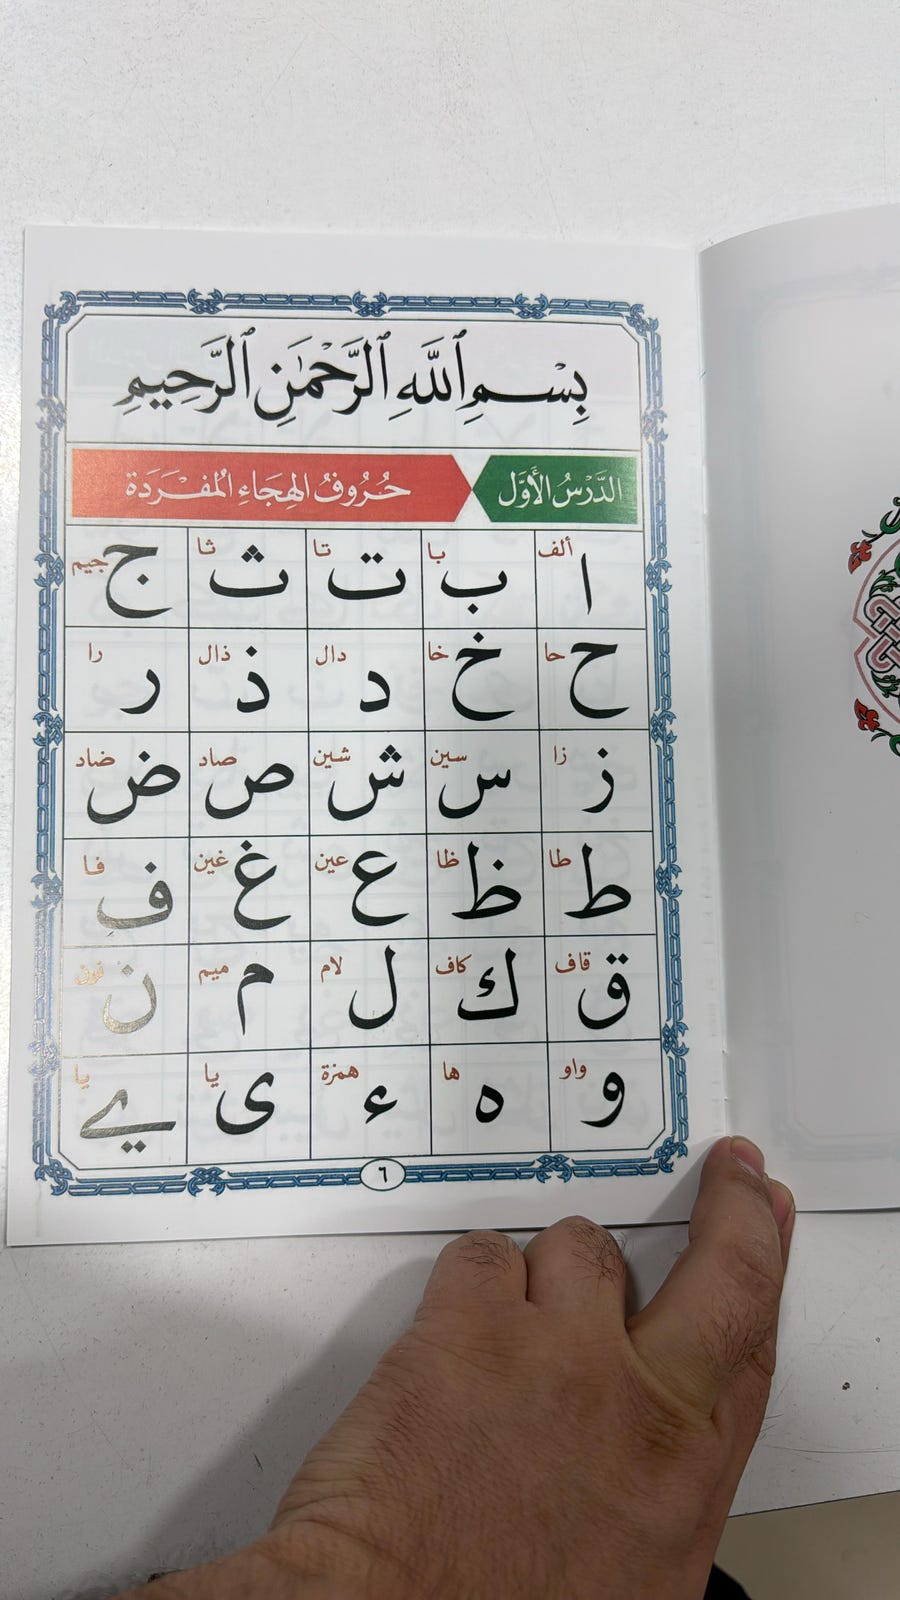 بِسْمِ ٱللَّهِ ٱلرَّحْمَٰنِ ٱلرَّحِيمِ
الدَّرْسُ الأَوَّل حُرُوفُ الهِجَاءِ المُفْرَدَة
ألف ا با ب تا ت ثا ث جيم ج
حا ح خا خ دال د ذال ذ را ر
زا ز سين س شين ش صاد ص ضاد ض
طا ط ظا ظ عين ع غين غ فا ف
قاف ق كاف ك لام ل ميم م نون ن
واو و ها ه همزة ء يا ى يا ے
٦